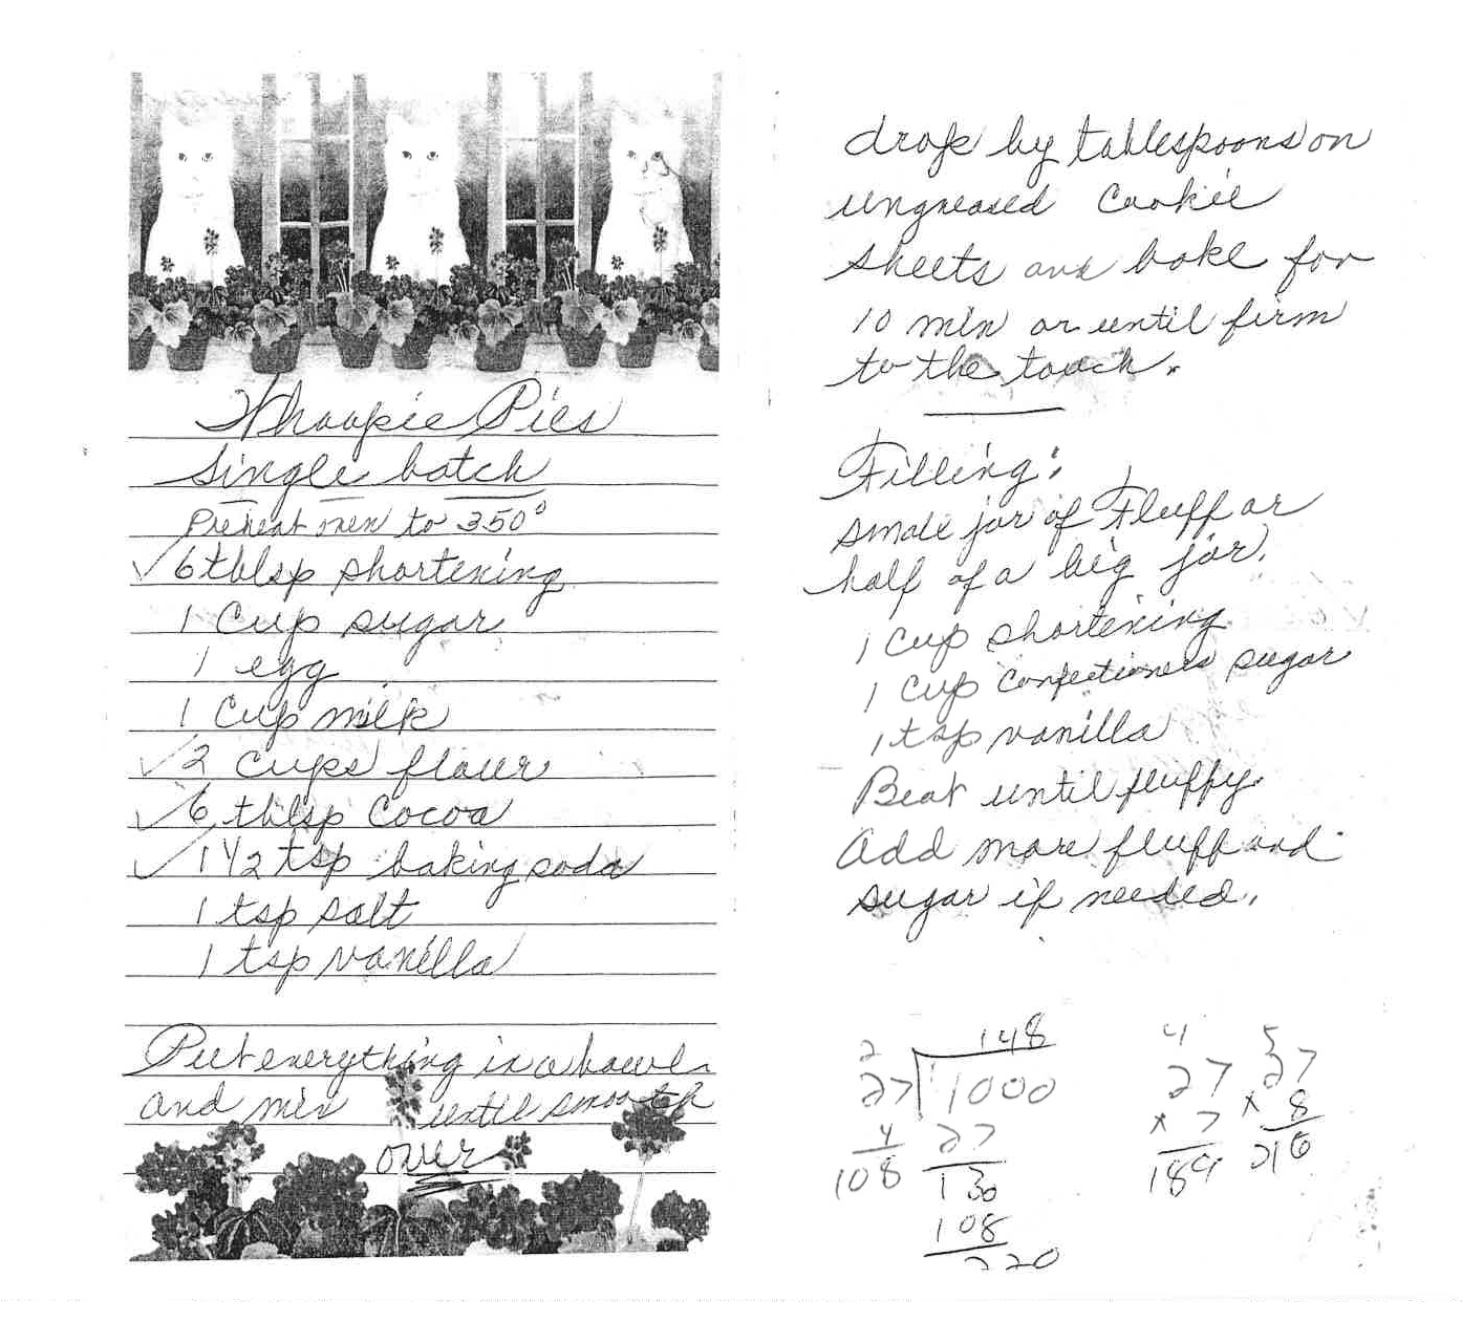 Whoopie Pies
single batch
Preheat oven to 350°
✓ 6 tblsp shortening
1 Cup sugar
1 egg
1 Cup milk
✓ 2 cups flour
✓ 6 tblsp Cocoa
✓ 1 1/2 tsp baking soda
1 tsp salt
1 tsp vanilla
Put everything in a bowl
and mix until smooth
over
drop by tablespoons on
ungreased Cookie
sheets and bake for
10 min or until firm
to the touch.
Filling:
small jar of Fluff or
half of a big jar.
1 Cup shortening
1 Cup Confectioners sugar
1 tsp vanilla
Beat until fluffy
Add more fluff and
sugar if needed.
2 148
27 1000
4 27
108 130
108
220
4
27
x 7
189
5
27
x 8
216